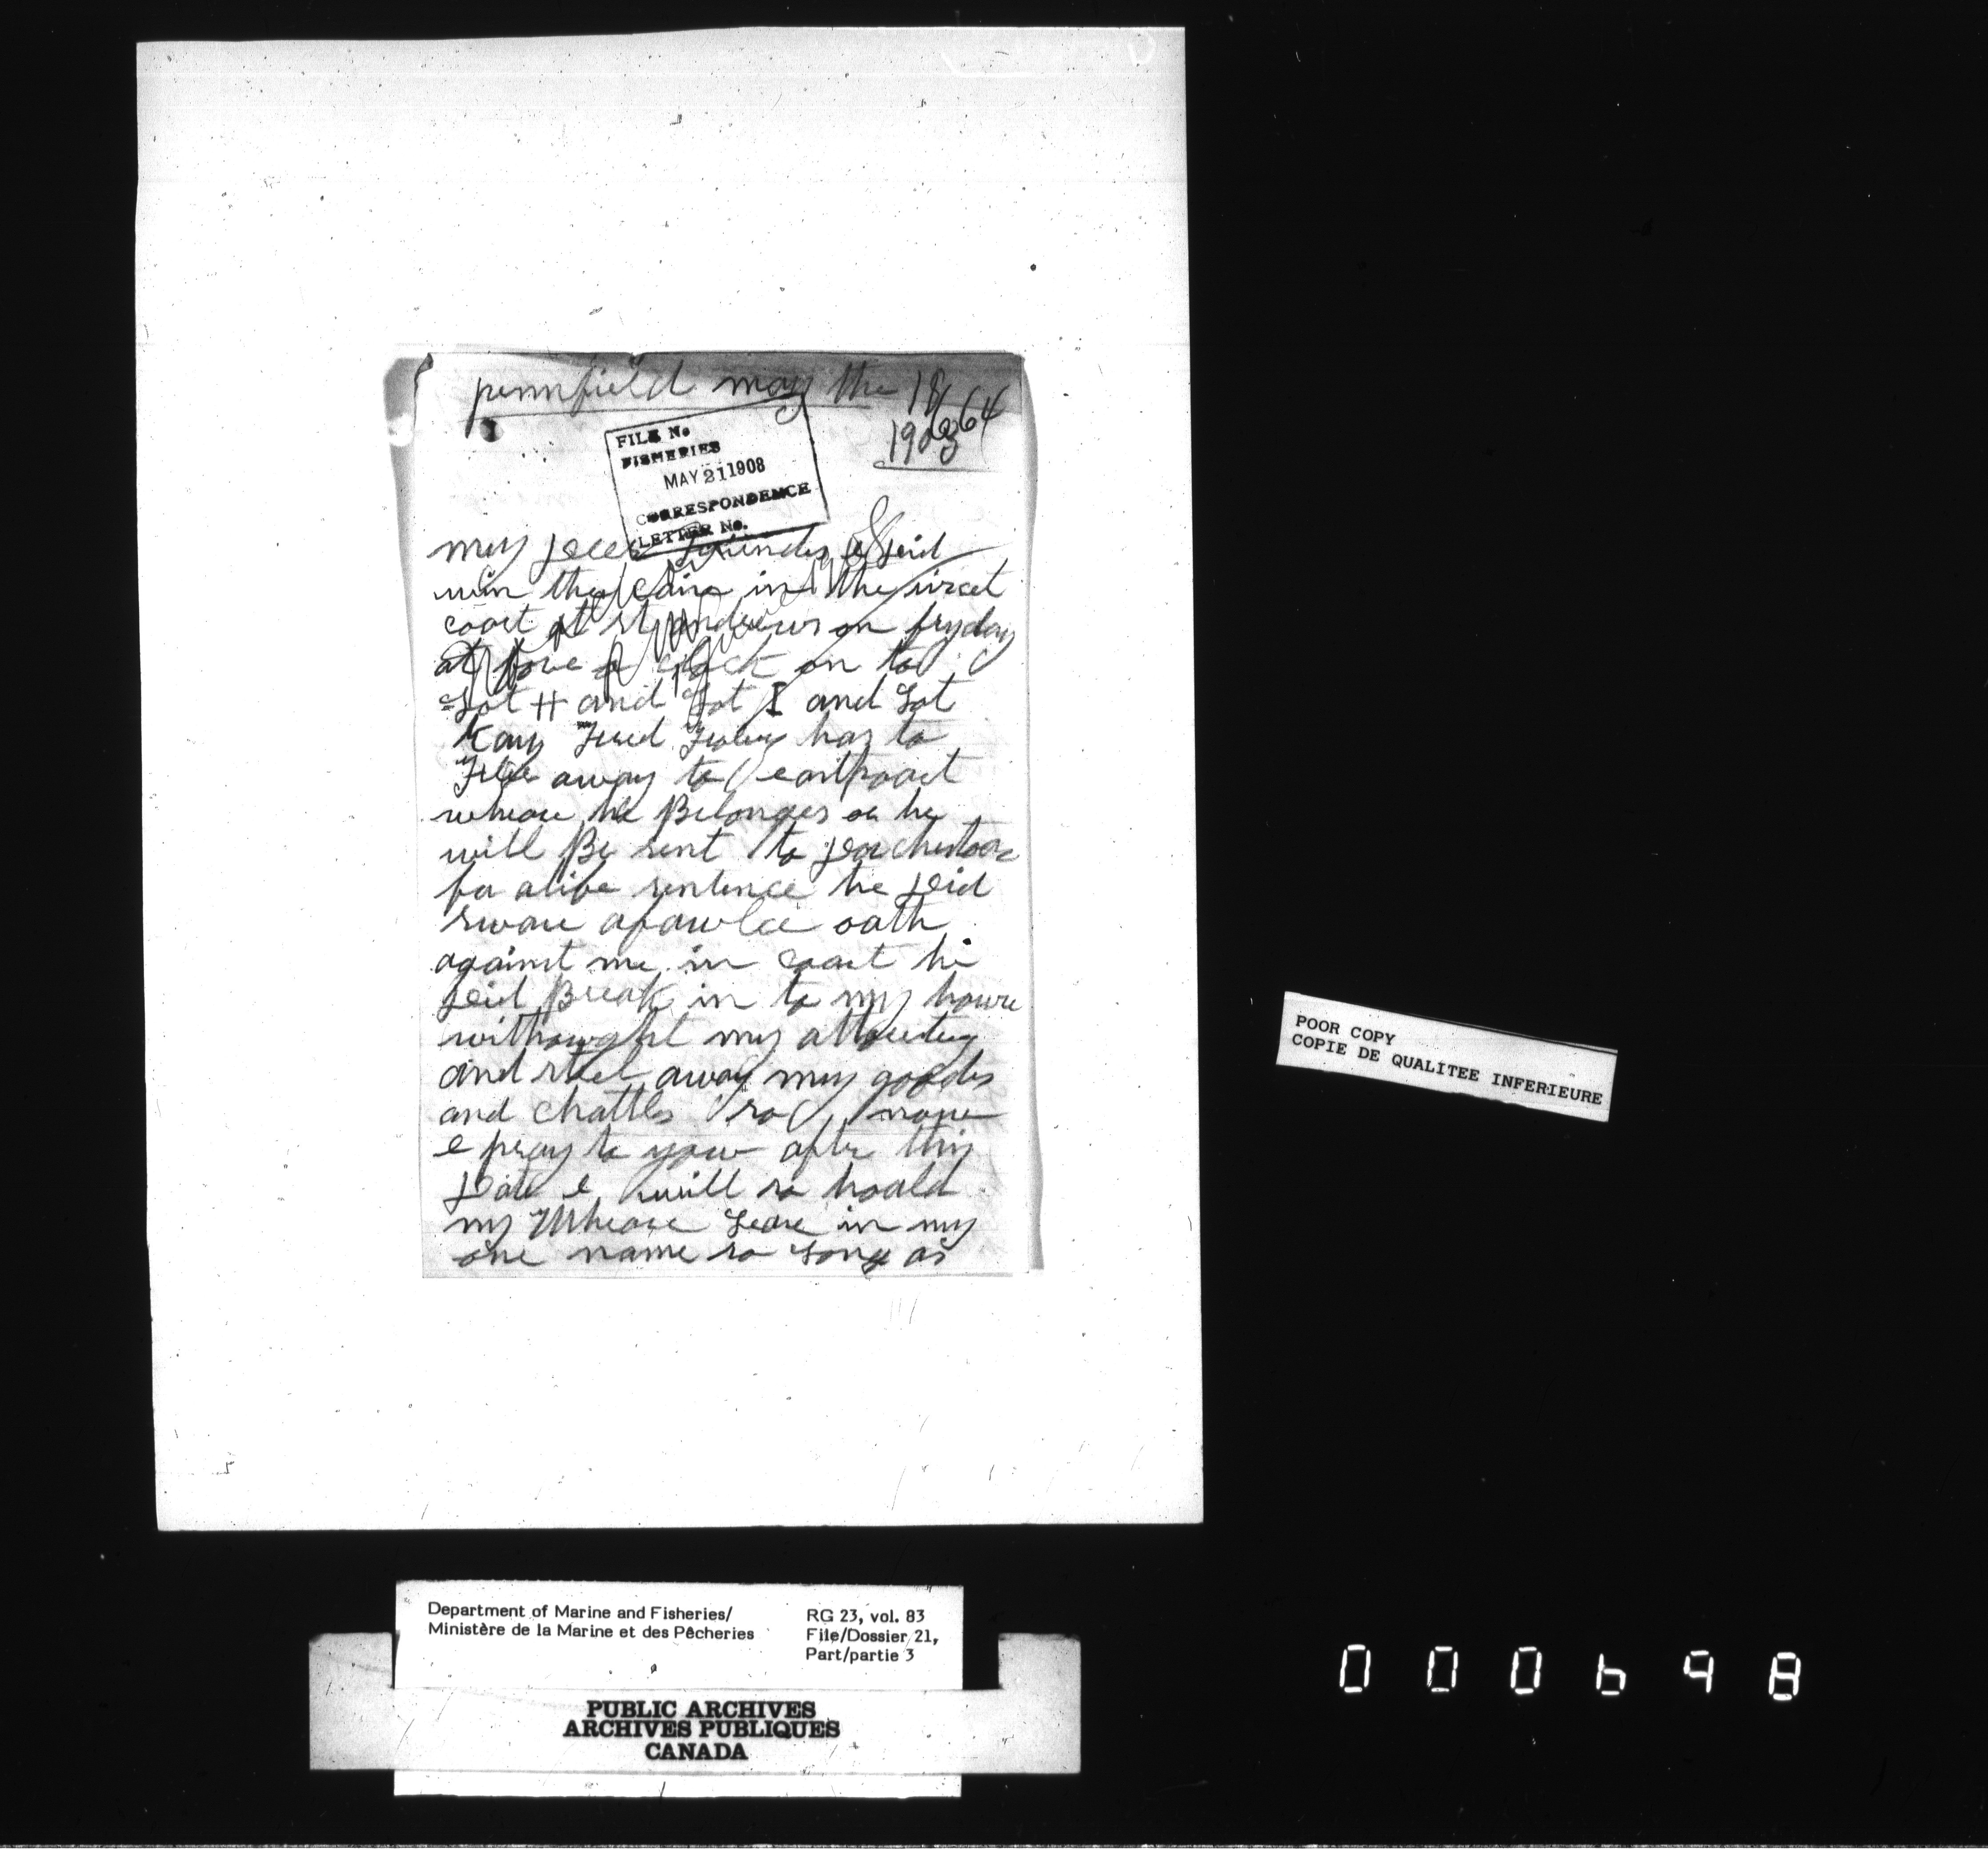 pennfield may the 18
1908
64
FILE No.
FISHERIES
MAY 21 1908
CORRESPONDENCE
LETTER No.
my deer friends e did
win the case in the circet
coart at st andrews on fryday
at clock on to
Lot H and Lot I and Lot
Kay Fred has to
away to eastpoart
wheare he Belonges or he
will Be sent to
for alife sentence he did
sware afawlce oath
against me in coart he
did Break in to my house
withowght my
and steel away my goods
and chattles so now
e pray to yow after this
Date e will so hoald
my Wheare Leace in my
one name so Long as
POOR COPY
COPIE DE QUALITEE INFERIEURE
Department of Marine and Fisheries/
Ministère de la Marine et des Pêcheries
RG 23, vol. 83
File/Dossier 21,
Part/partie 3
PUBLIC ARCHIVES
ARCHIVES PUBLIQUES
CANADA
000698